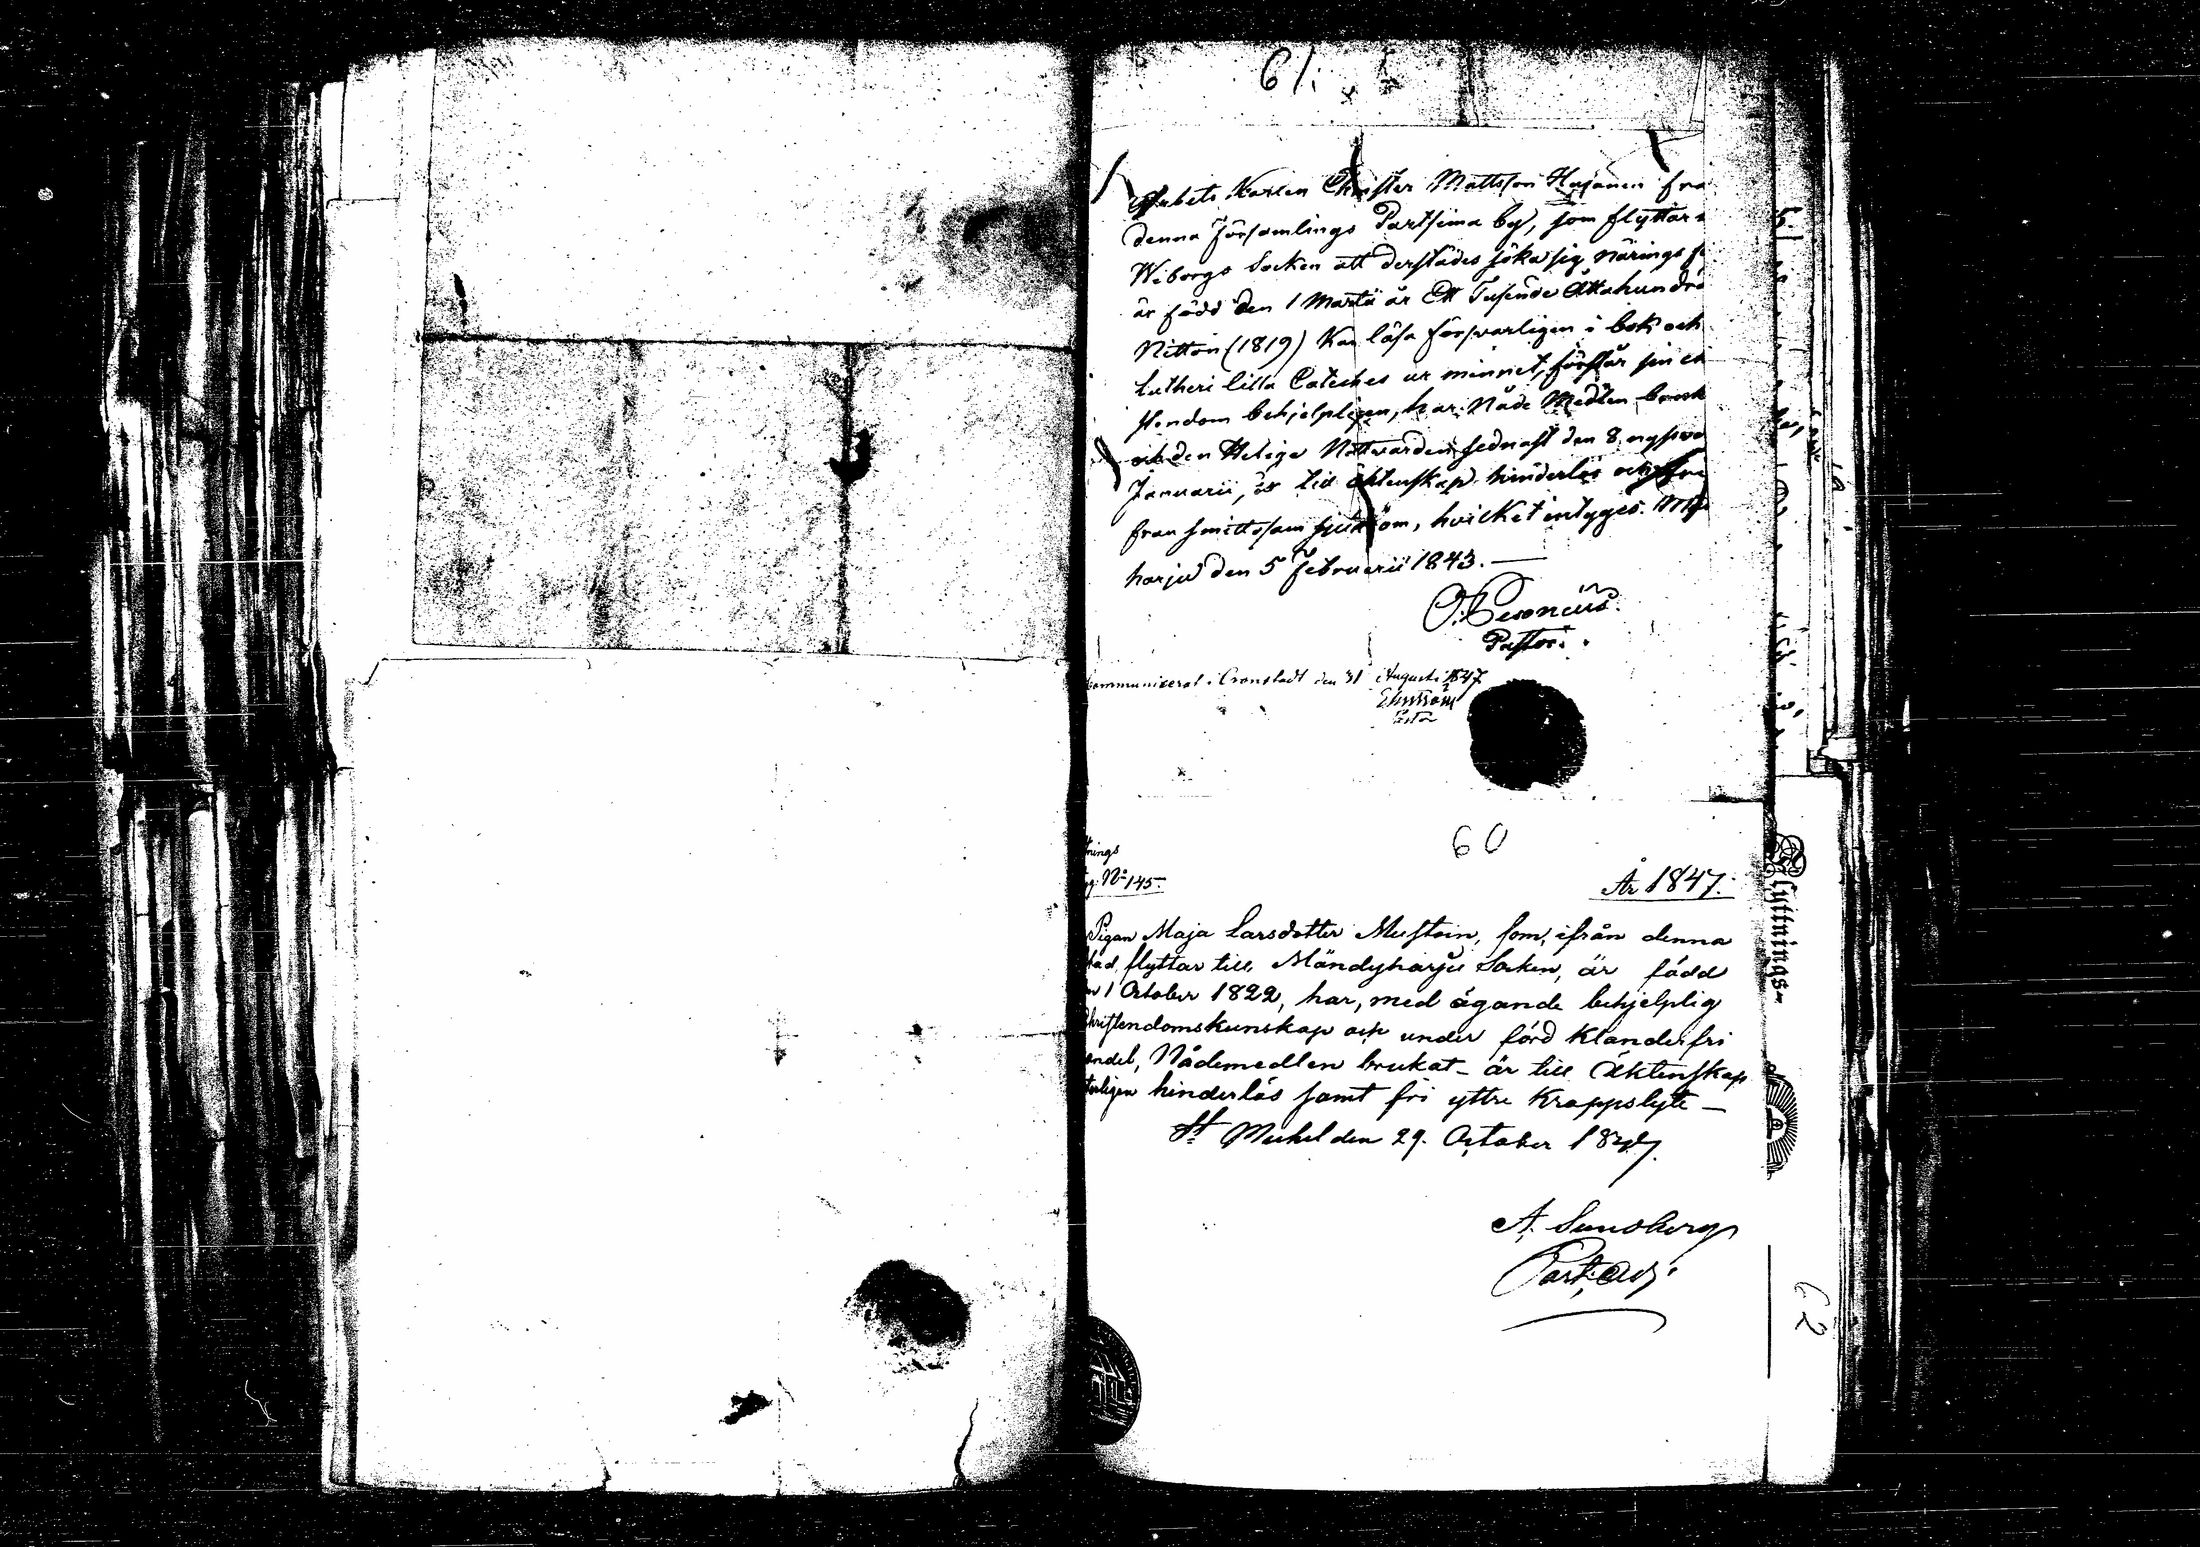 61.
Arbets Karlen Christer Mattsson Hujanen frå
denna Församlings Partsima by, som flyttar
Wiborgs Socken att derstädes söka sig närings
är född den 1 Martii år Ett Tusende Åttahundra
Nitton (1819) Kan läsa försvarligen i bok och
Lutheri lilla Cateches ur minnet, förstår sin
stendom behjelpligen, har Nåde Medlen bruk
och den Helige Nattvarden sednast den 8
Januarii, är till äktenskap hinderlös och
från smittosam sjukdom, hvilket intygas.
harju den 5 Februarii 1843.
Pastor.
Communicerat i Cronstadt den 31 Augusti 1847
60
No 145.
År 1847.
Pigan Maja Larsdotter Mustoin, som, ifrån denna
stad, flyttar till Mändyharju Socken, är född
1 October 1822, har, med ägande behjelplig
Christendomskunskap och under förd klanderfri
andel, Nådemedlen brukat - är till Äktenskap
hinderlös samt fri yttre Kroppslyte -
St Michel den 29. October 1847.
A. Sundberg
Past. Adj.
Flyttnings-
62